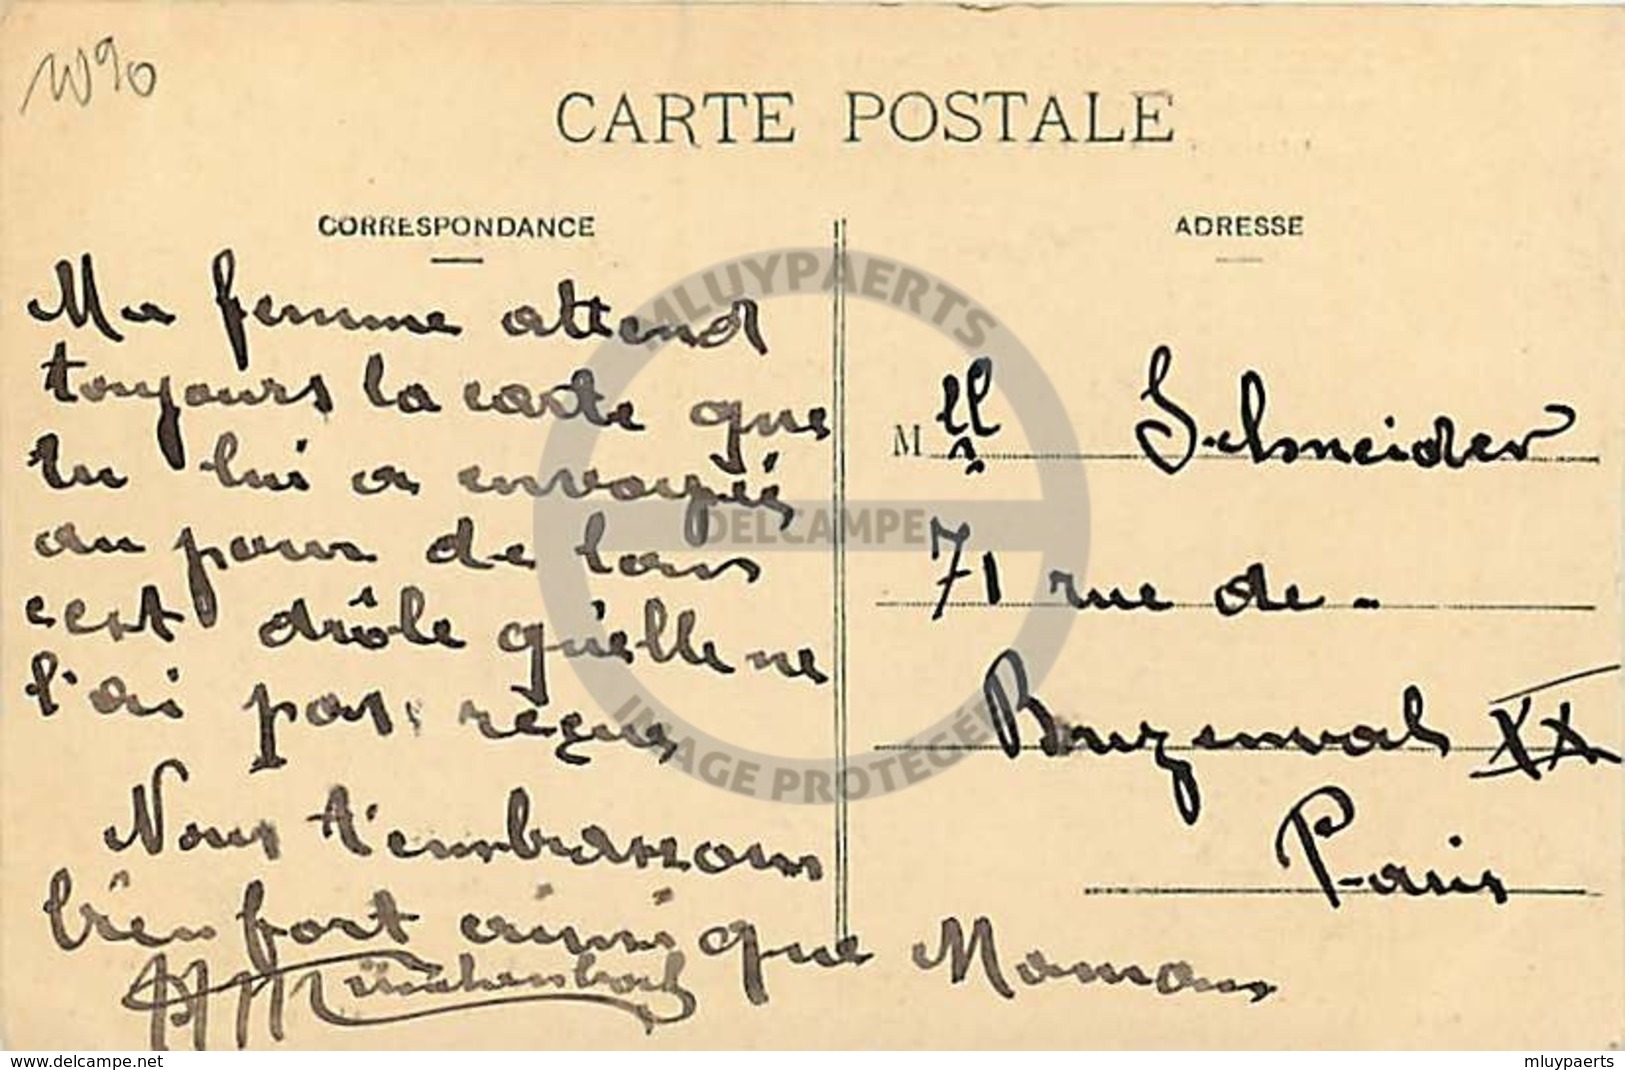 CARTE POSTALE
CORRESPONDANCE
Ma femme attend
toujours la carte que
tu lui a envoyée
au jour de l'ans
c'est drôle qu'elle ne
l'ai pas reçus
Nous t'embrassons
bien fort ainsi que Maman
ADRESSE
Mlle Schneider
71 rue de -
Buzenval XX
Paris
MLUYPAERTS
DELCAMPE
IMAGE PROTÉGÉE
www.delcampe.net
mluypaerts